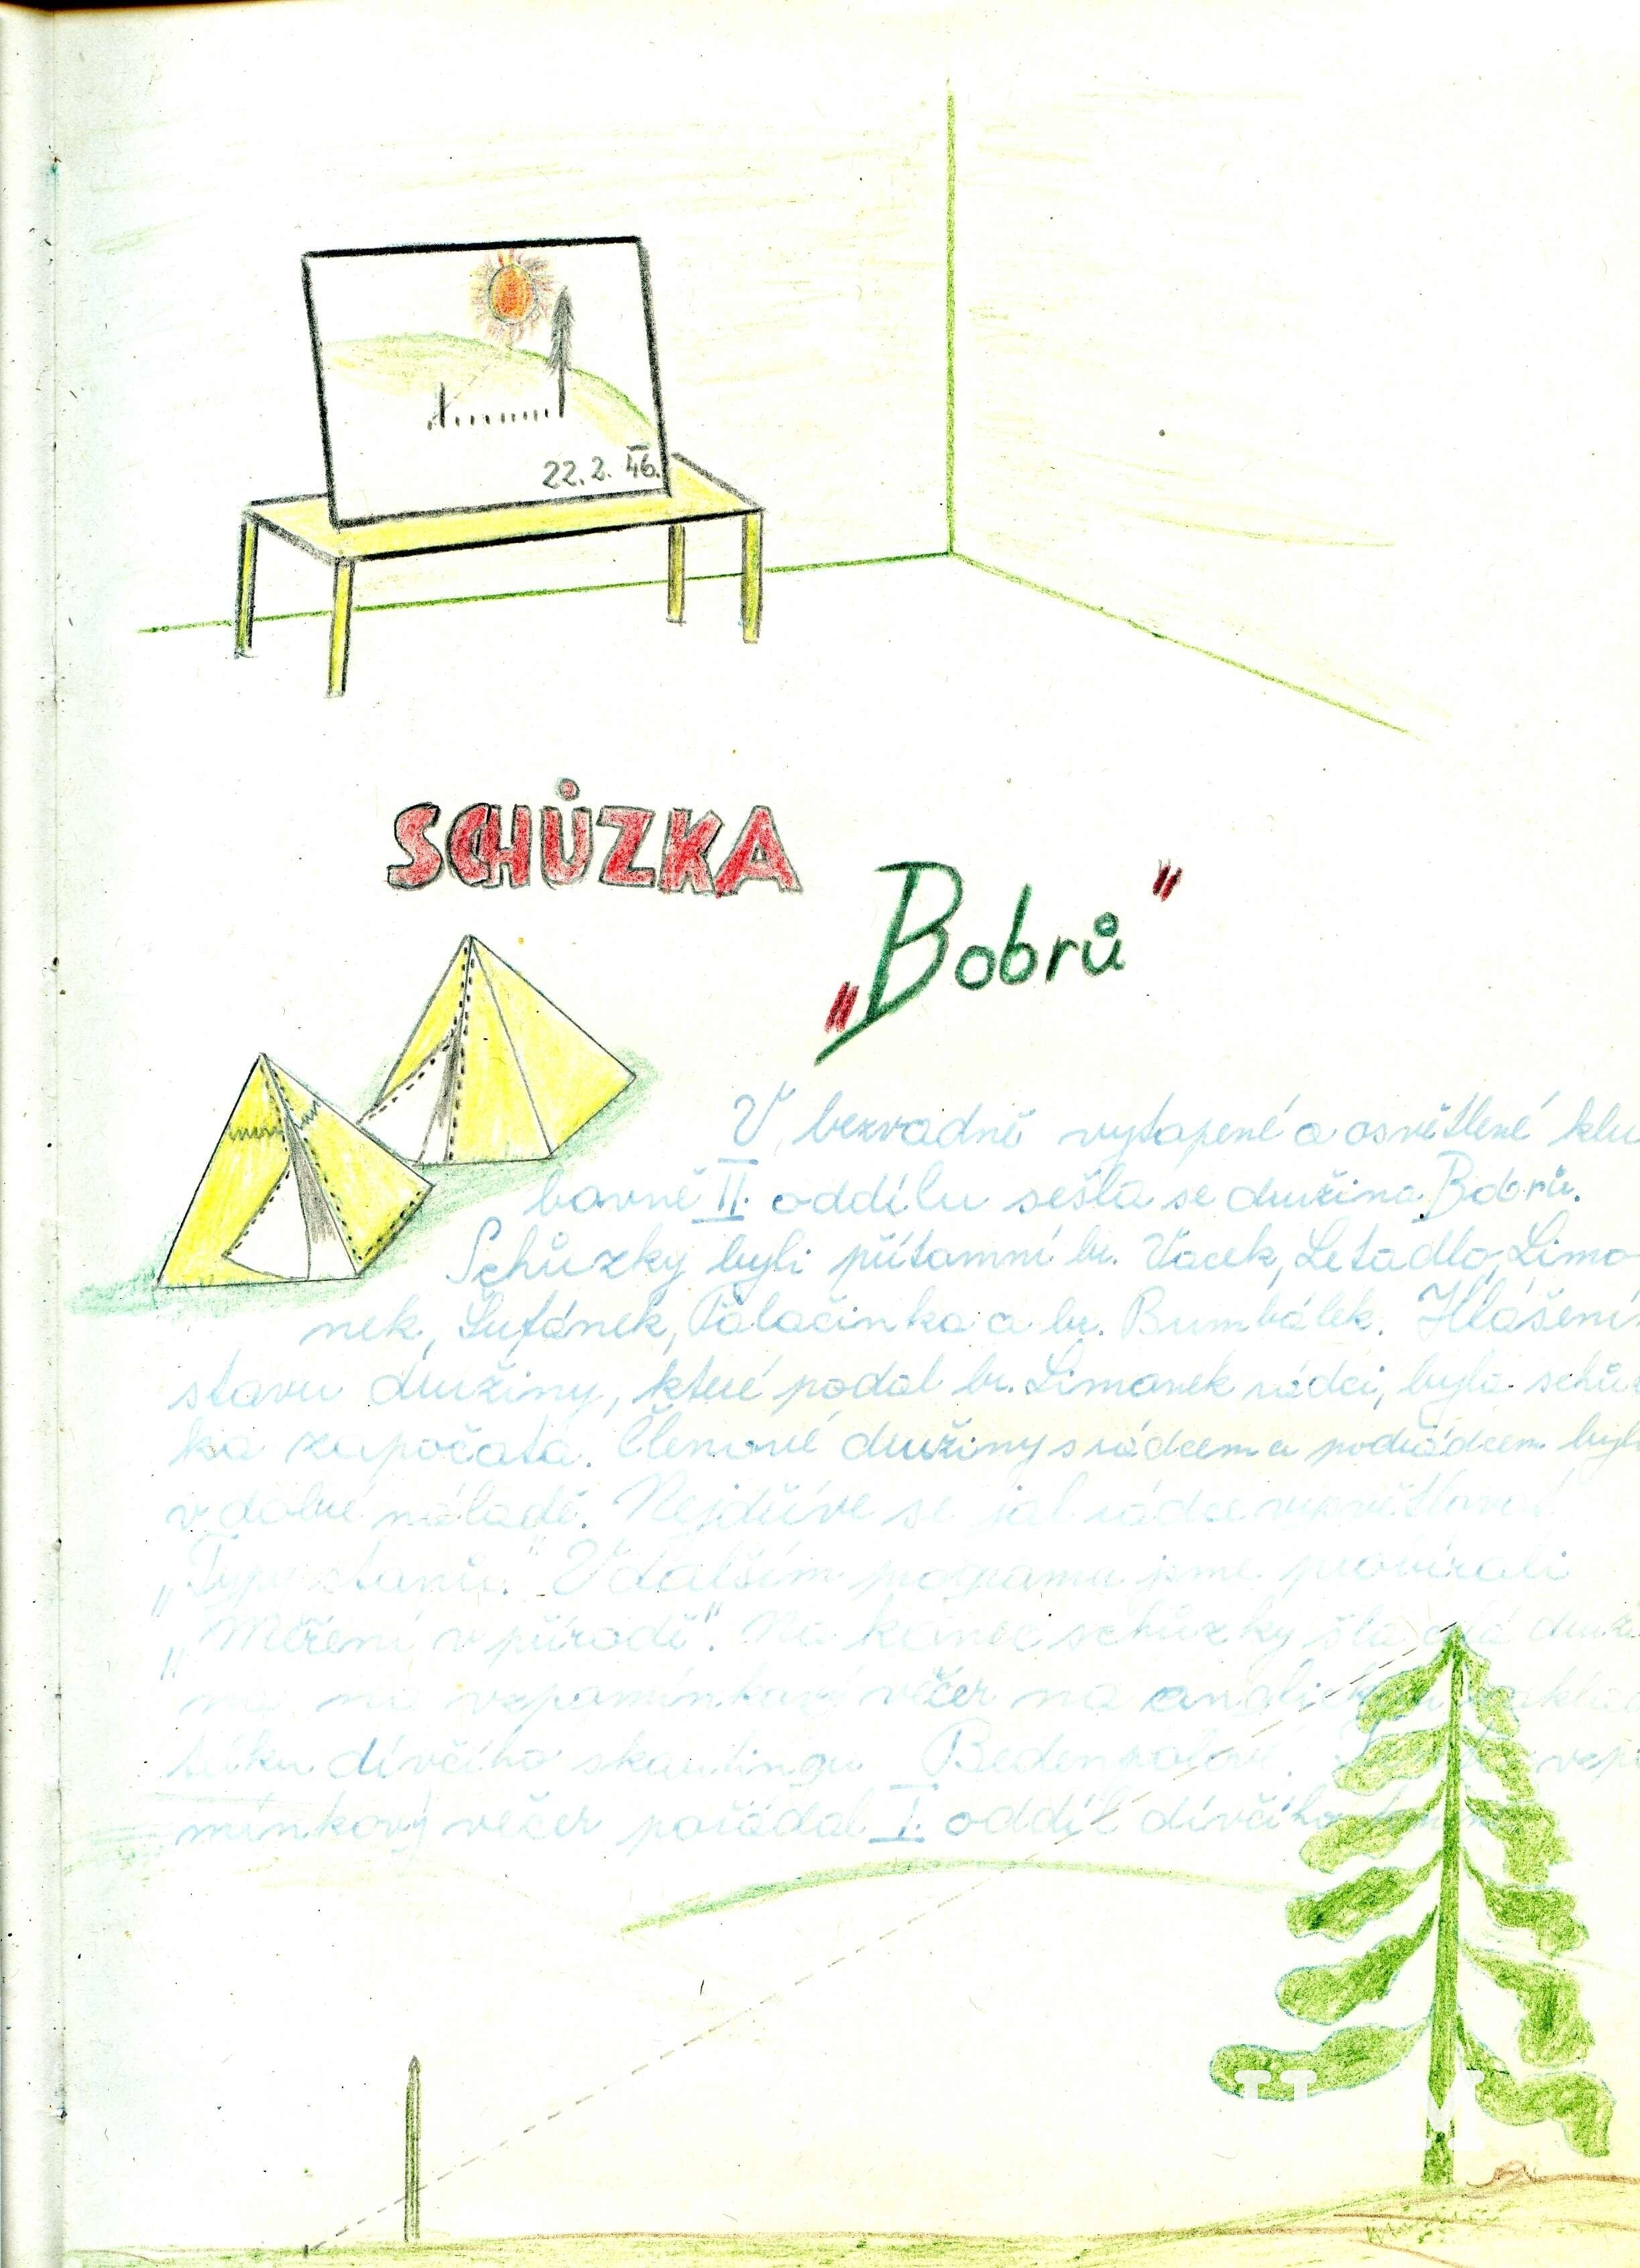 22. 2. 46.
SCHŮZKA
„Bobrů"
V bezvadně vytapené a osvětlené klu
bovně II. oddílu sešla se družina Bobrů.
Schůzky byli přítamní br. Vacek, Letadlo, Limo
nek, Šufánek, Palačinka a br. Bumbálek. Hlášením
stavu družiny, které podal br. Limonek rádci, byla schůz
ka započata. Členové družiny s rádcem a podrádcem byli
v dobré náladě. Nejdříve se jal rádce vysvětlovat
„Typy stanů." V dalším programu jsme probírali
„Měření v přírodě". Na konec schůzky šla celá druži
na na vzpomínkový večer na
telku dívčího skautingu Bedenpolové. vzpo
mínkový večer pořádal I. oddíl dívčího